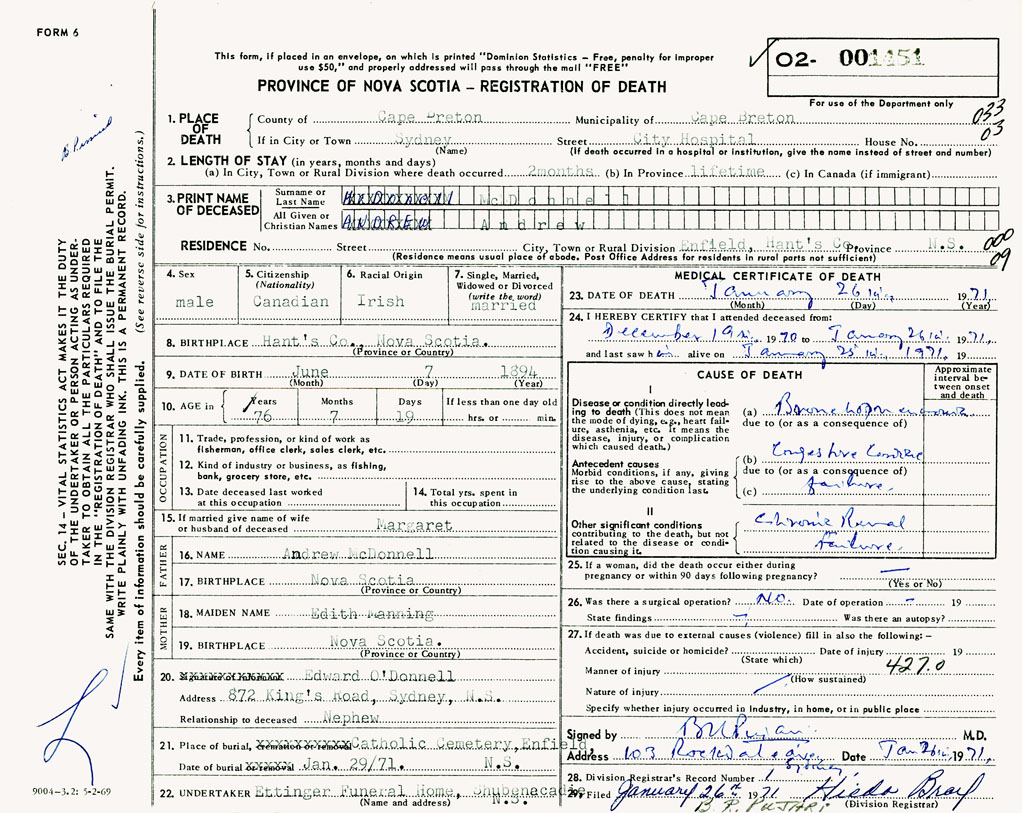 FORM 6
This form, if placed in an envelope, on which is printed "Dominion Statistics – Free, penalty for improper
use $50," and properly addressed will pass through the mail "FREE"
PROVINCE OF NOVA SCOTIA – REGISTRATION OF DEATH
02- 001451
For use of the Department only
033
03
1. PLACE OF DEATH
County of Cape Breton Municipality of Cape Breton
If in City or Town Sydney Street City Hospital House No.
(Name) (If death occurred in a hospital or institution, give the name instead of street and number)
2. LENGTH OF STAY (in years, months and days)
(a) In City, Town or Rural Division where death occurred 2months (b) In Province lifetime (c) In Canada (if immigrant)
3. PRINT NAME OF DECEASED
Surname or Last Name McDonnell
All Given or Christian Names ANDREW Andrew
RESIDENCE No. Street City, Town or Rural Division Enfield, Hant's Co. Province N.S.
(Residence means usual place of abode. Post Office Address for residents in rural parts not sufficient)
000
09
4. Sex
male
5. Citizenship
(Nationality)
Canadian
6. Racial Origin
Irish
7. Single, Married,
Widowed or Divorced
(write the word)
married
8. BIRTHPLACE Hant's Co., Nova Scotia.
(Province or Country)
9. DATE OF BIRTH June 7 1894
(Month) (Day) (Year)
10. AGE in Years Months Days If less than one day old
76 7 19 hrs. or min.
OCCUPATION
11. Trade, profession, or kind of work as
fisherman, office clerk, sales clerk, etc.
12. Kind of industry or business, as fishing,
bank, grocery store, etc.
13. Date deceased last worked
at this occupation
14. Total yrs. spent in
this occupation
15. If married give name of wife
or husband of deceased Margaret
FATHER
16. NAME Andrew McDonnell
17. BIRTHPLACE Nova Scotia
(Province or Country)
MOTHER
18. MAIDEN NAME Edith Manning
19. BIRTHPLACE Nova Scotia.
(Province or Country)
20. Signature of informant Edward O'Donnell
Address 872 King's Road, Sydney, N.S.
Relationship to deceased Nephew
21. Place of burial, cremation or removal Catholic Cemetery, Enfield
Date of burial or removal Jan. 29/71. N.S.
22. UNDERTAKER Ettinger Funeral Home, Shubenacadie
(Name and address) N.S.
MEDICAL CERTIFICATE OF DEATH
23. DATE OF DEATH January 26th, 1971
(Month) (Day) (Year)
24. I HEREBY CERTIFY that I attended deceased from:
December 1970 to January 26th 1971,
and last saw him alive on January 25th, 1971, 19
CAUSE OF DEATH
Approximate
interval be-
tween onset
and death
I
Disease or condition directly lead-
ing to death (This does not mean
the mode of dying, e.g., heart fail-
ure, asthenia, etc. It means the
disease, injury, or complication
which caused death.)
(a) Bronchopneumonia
due to (or as a consequence of)
Antecedent causes
Morbid conditions, if any, giving
rise to the above cause, stating
the underlying condition last.
(b) Congestive Cardiac
due to (or as a consequence of)
(c) failure,
II
Other significant conditions
contributing to the death, but not
related to the disease or condi-
tion causing it.
Chronic Renal
failure,
25. If a woman, did the death occur either during
pregnancy or within 90 days following pregnancy? –
(Yes or No)
26. Was there a surgical operation? NO. Date of operation – 19
State findings – Was there an autopsy?
27. If death was due to external causes (violence) fill in also the following: –
Accident, suicide or homicide? Date of injury 19
(State which)
427.0
Manner of injury
(How sustained)
Nature of injury
Specify whether injury occurred in industry, in home, or in public place
Signed by M.D.
Address 103 Sydney Date Jan 26th, 1971,
28. Division Registrar's Record Number 1
29. Filed January 26th 1971 Hilda
B. P. PUJARI (Division Registrar)
SEC. 14 – VITAL STATISTICS ACT MAKES IT THE DUTY
OF THE UNDERTAKER OR PERSON ACTING AS UNDER-
TAKER TO OBTAIN ALL THE PARTICULARS REQUIRED
IN THE "REGISTRATION OF DEATH" AND TO FILE THE
SAME WITH THE DIVISION REGISTRAR WHO SHALL ISSUE THE BURIAL PERMIT.
WRITE PLAINLY WITH UNFADING INK. THIS IS A PERMANENT RECORD.
Every item of information should be carefully supplied. (See reverse side for instructions.)
9004-3.2: 5-2-69